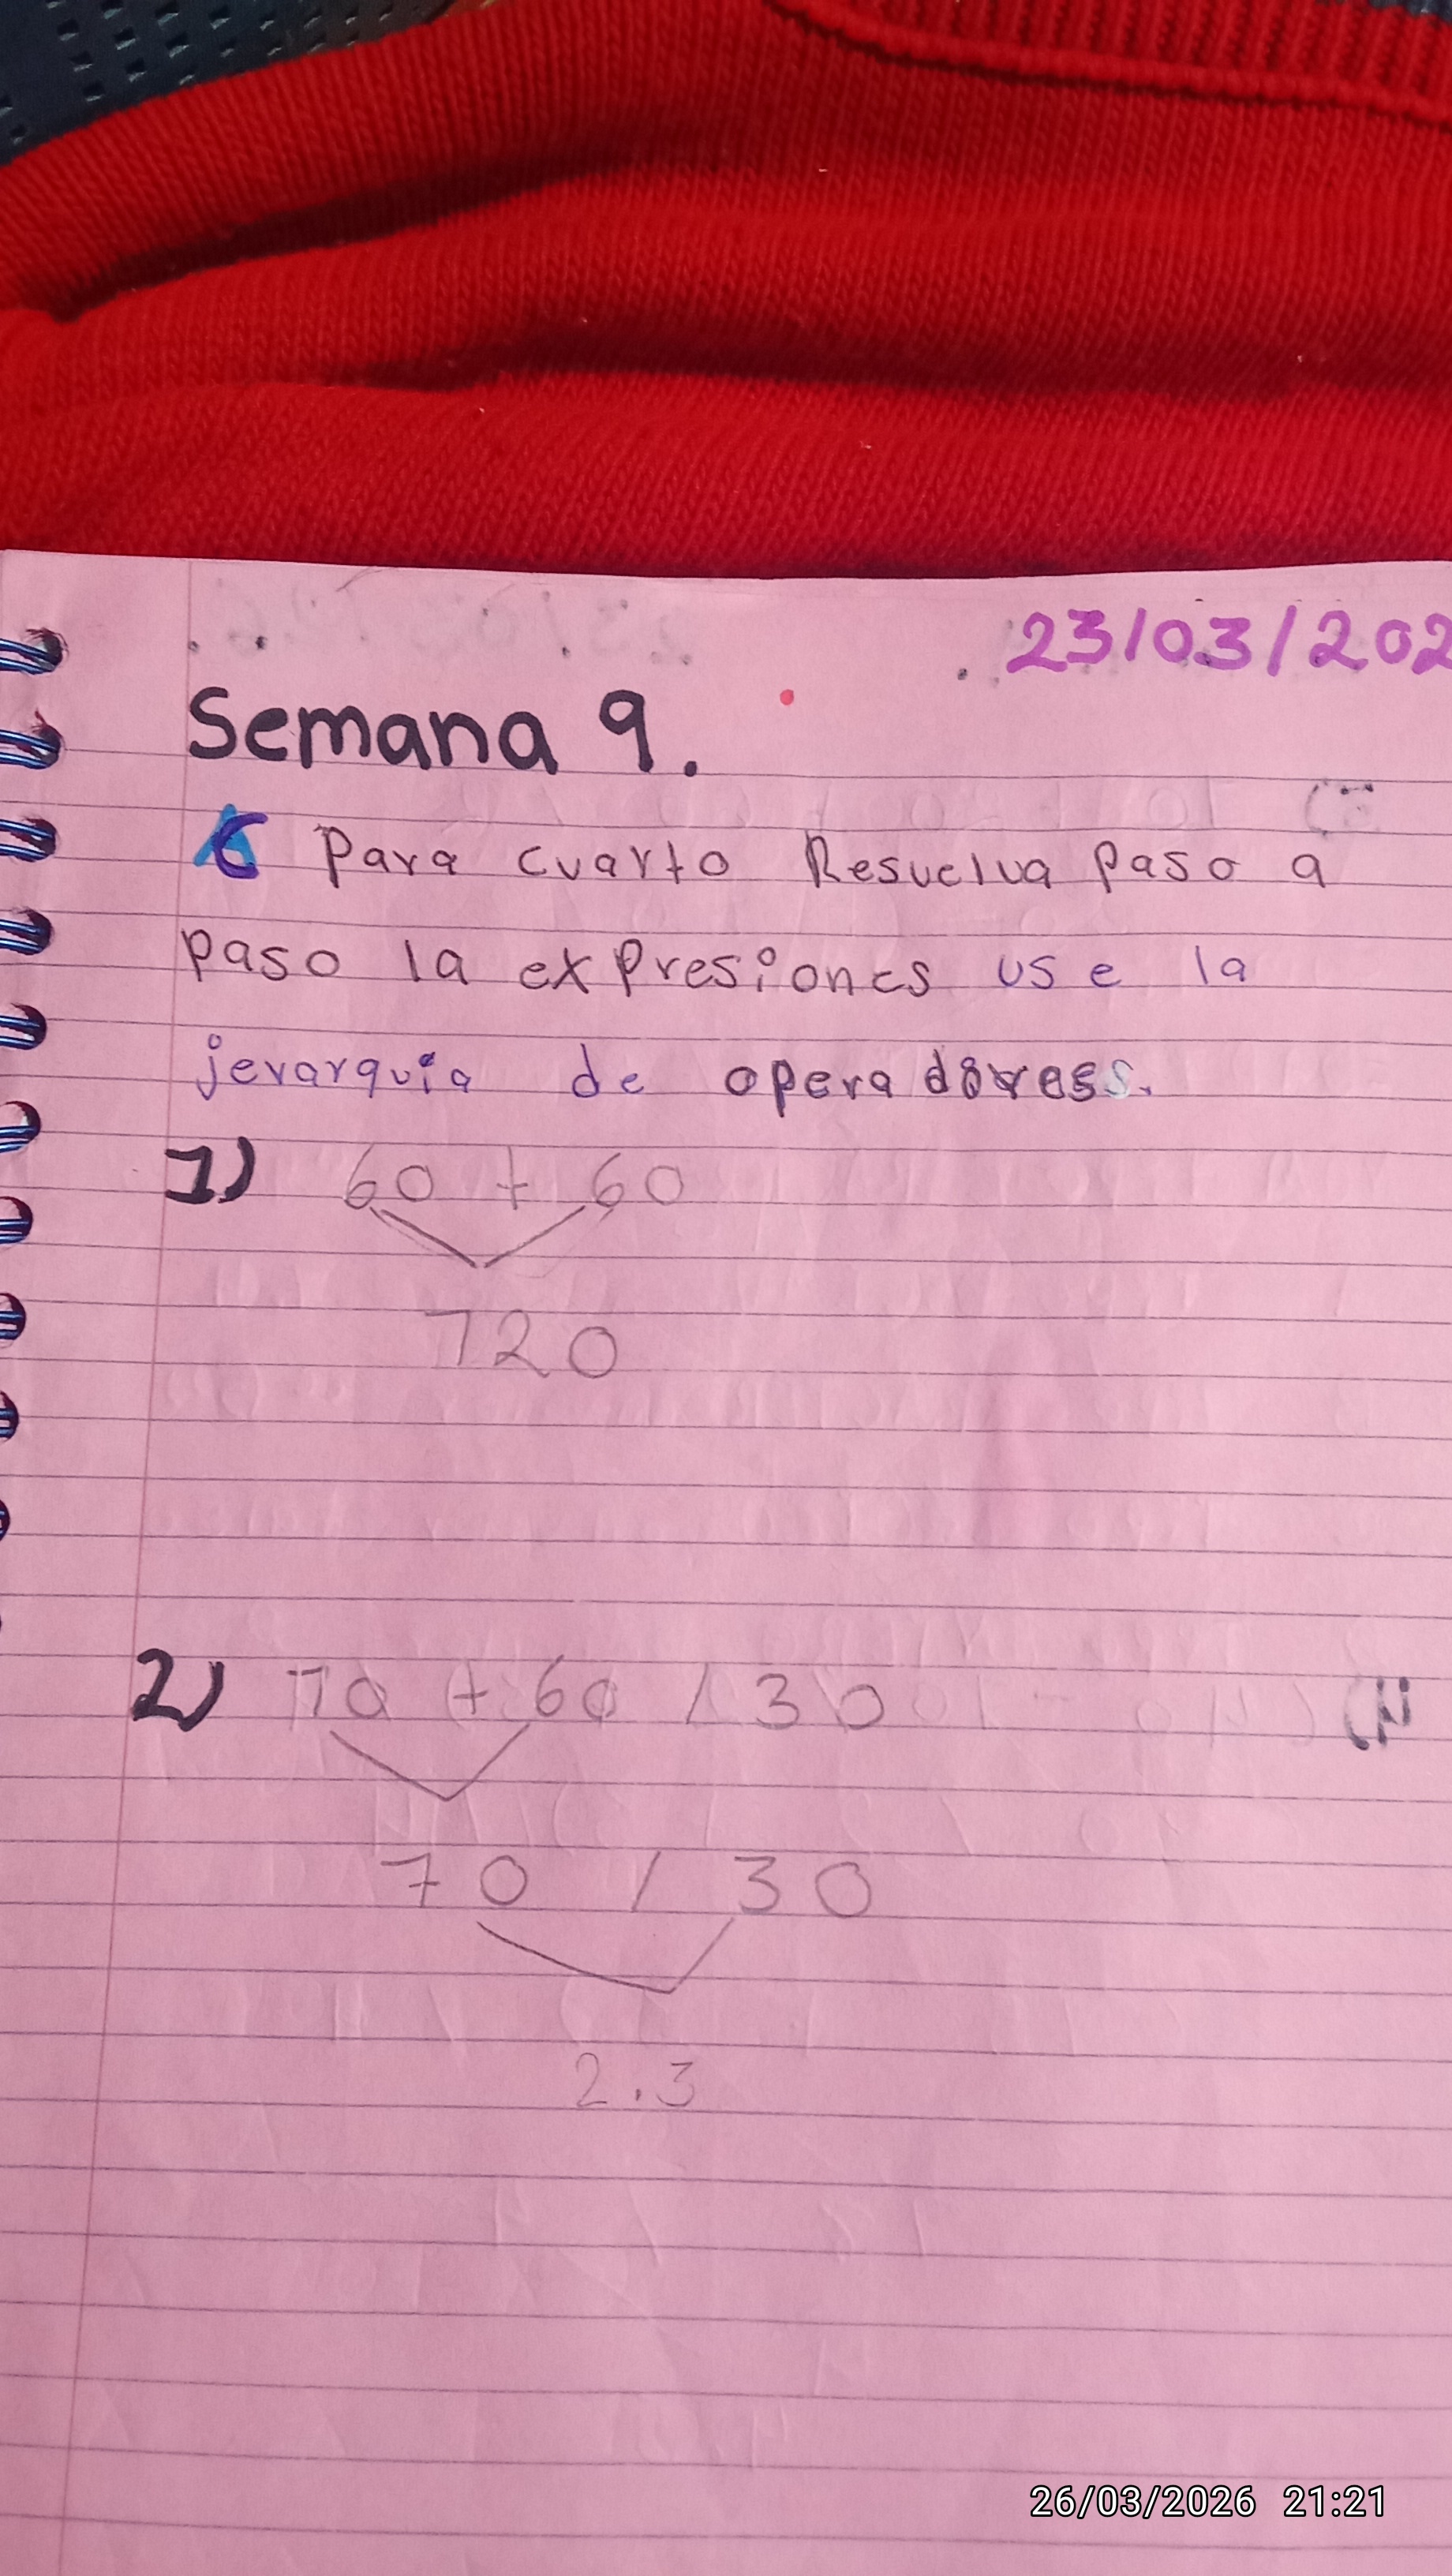 23/03/202
Semana 9.
Para cuarto Resuelva Paso a
paso la expresiones use la
jerarquia de operadores.
1) 60 + 60
120
2) 10 + 60 / 30
70 / 30
2.3
26/03/2026 21:21